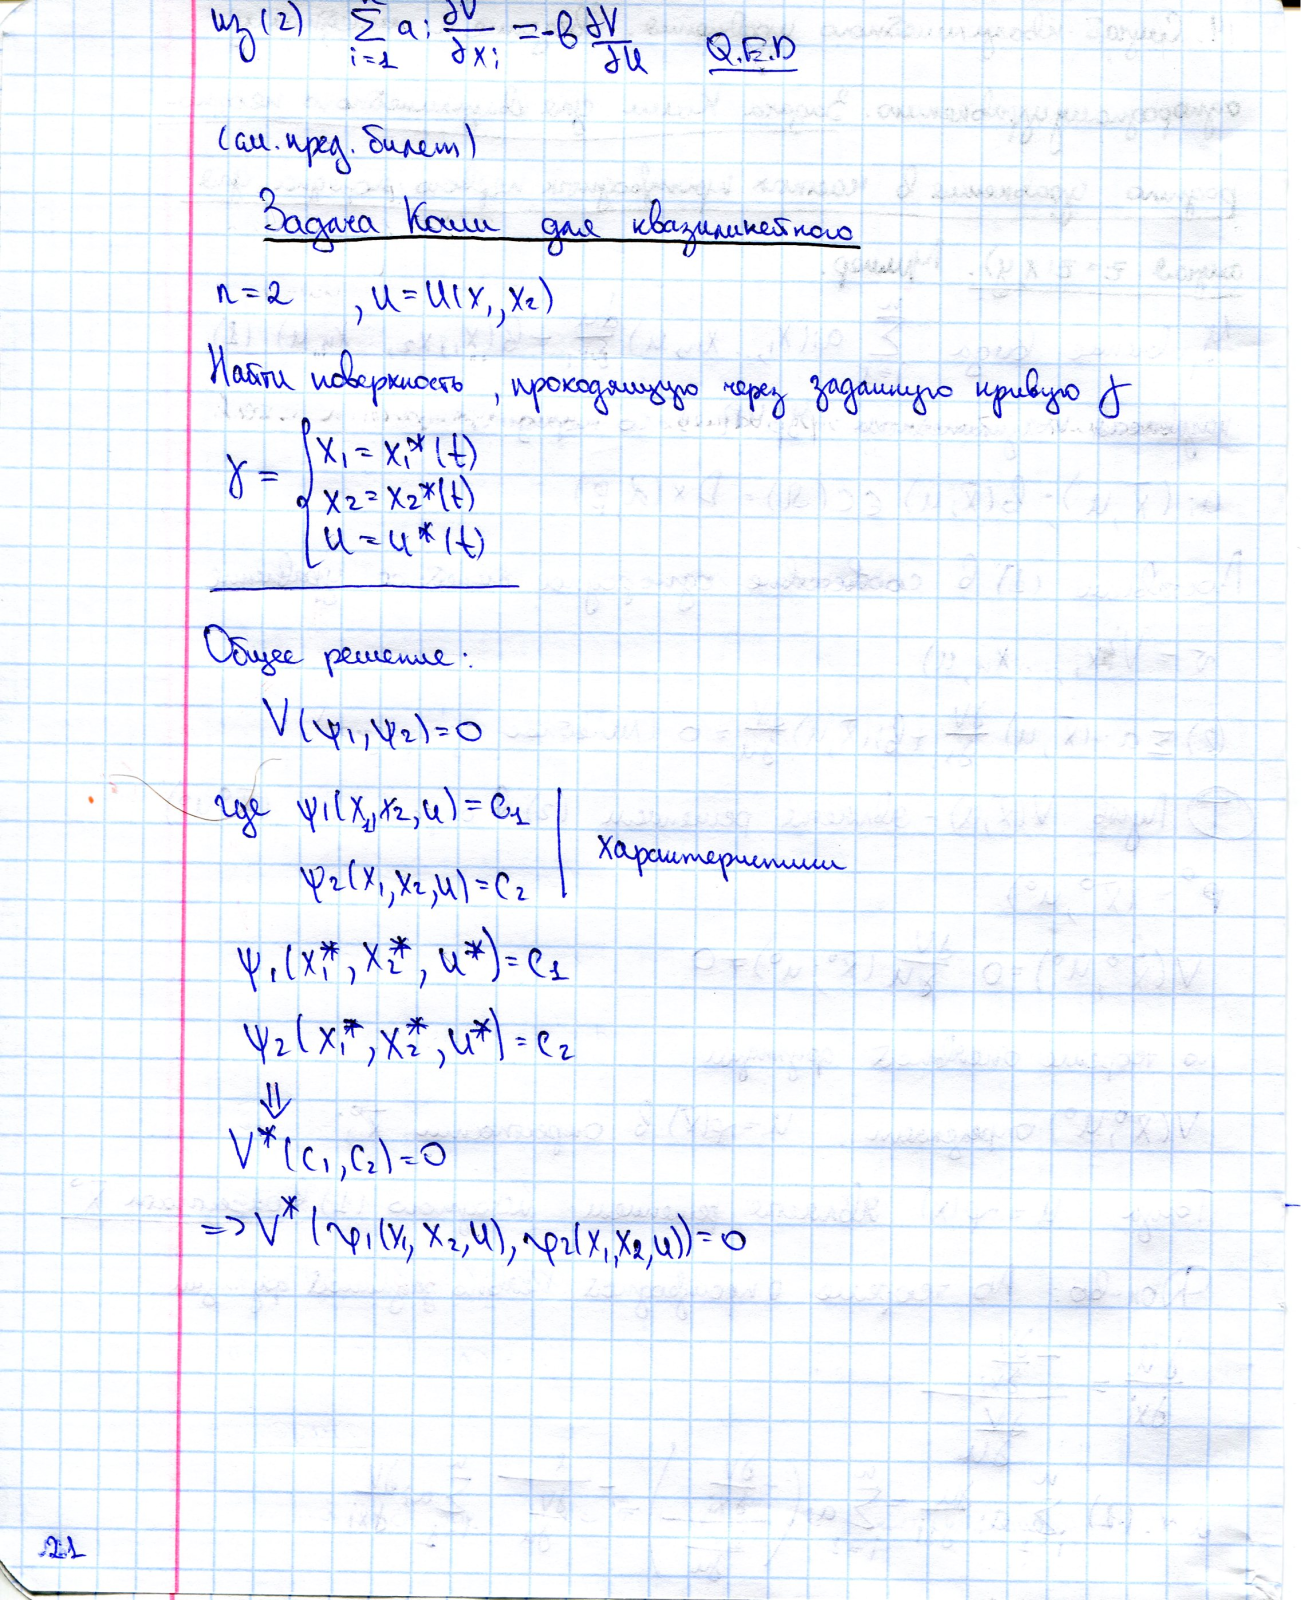 из (2) ∑ i=1 n a i ∂V/∂x i = -b ∂V/∂u Q.E.D
(см. пред. билет)
Задача Коши для квазилинейного
n=2 , u=u(x₁,x₂)
Найти поверхность, проходящую через заданную кривую γ
γ = { x₁ = x₁*(t)
x₂ = x₂*(t)
u = u*(t)
Общее решение:
V(ψ₁,ψ₂)=0
где ψ₁(x₁,x₂,u)=c₁
ψ₂(x₁,x₂,u)=c₂
характеристики
ψ₁(x₁*, x₂*, u*)=c₁
ψ₂(x₁*, x₂*, u*)=c₂
⇓
V*(c₁,c₂)=0
=> V*(ψ₁(x₁,x₂,u), ψ₂(x₁,x₂,u))=0
21